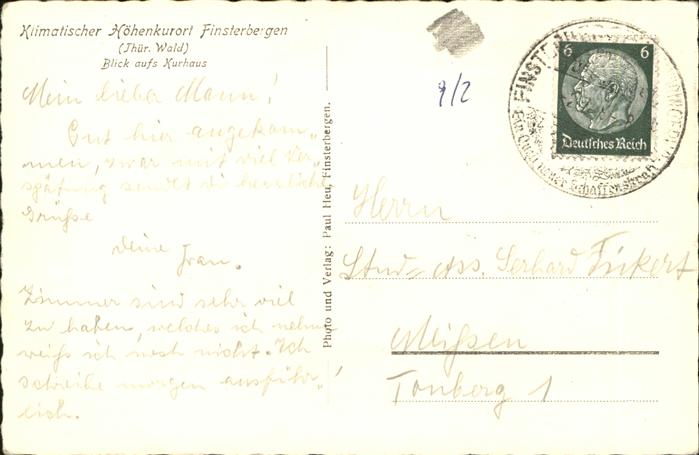 Klimatischer Höhenkurort Finsterbergen
(Thür. Wald)
Blick aufs Kurhaus
Mein lieber Mann!
Gut hier angekom-
men, zwar mit viel Ver-
spätung sendet dir herzliche
Grüße
Deine Frau.
Zimmer sind sehr viel
zu haben, welches ich nehme
weiß ich noch nicht. Ich
schreibe morgen ausführ-
lich.
Photo und Verlag: Paul Heu, Finsterbergen.
9/2
6 6
Deutsches Reich
FINSTERBERGEN
Herrn
Stud-Ass. Gerhard Fickert
Meißen
Tonberg 1